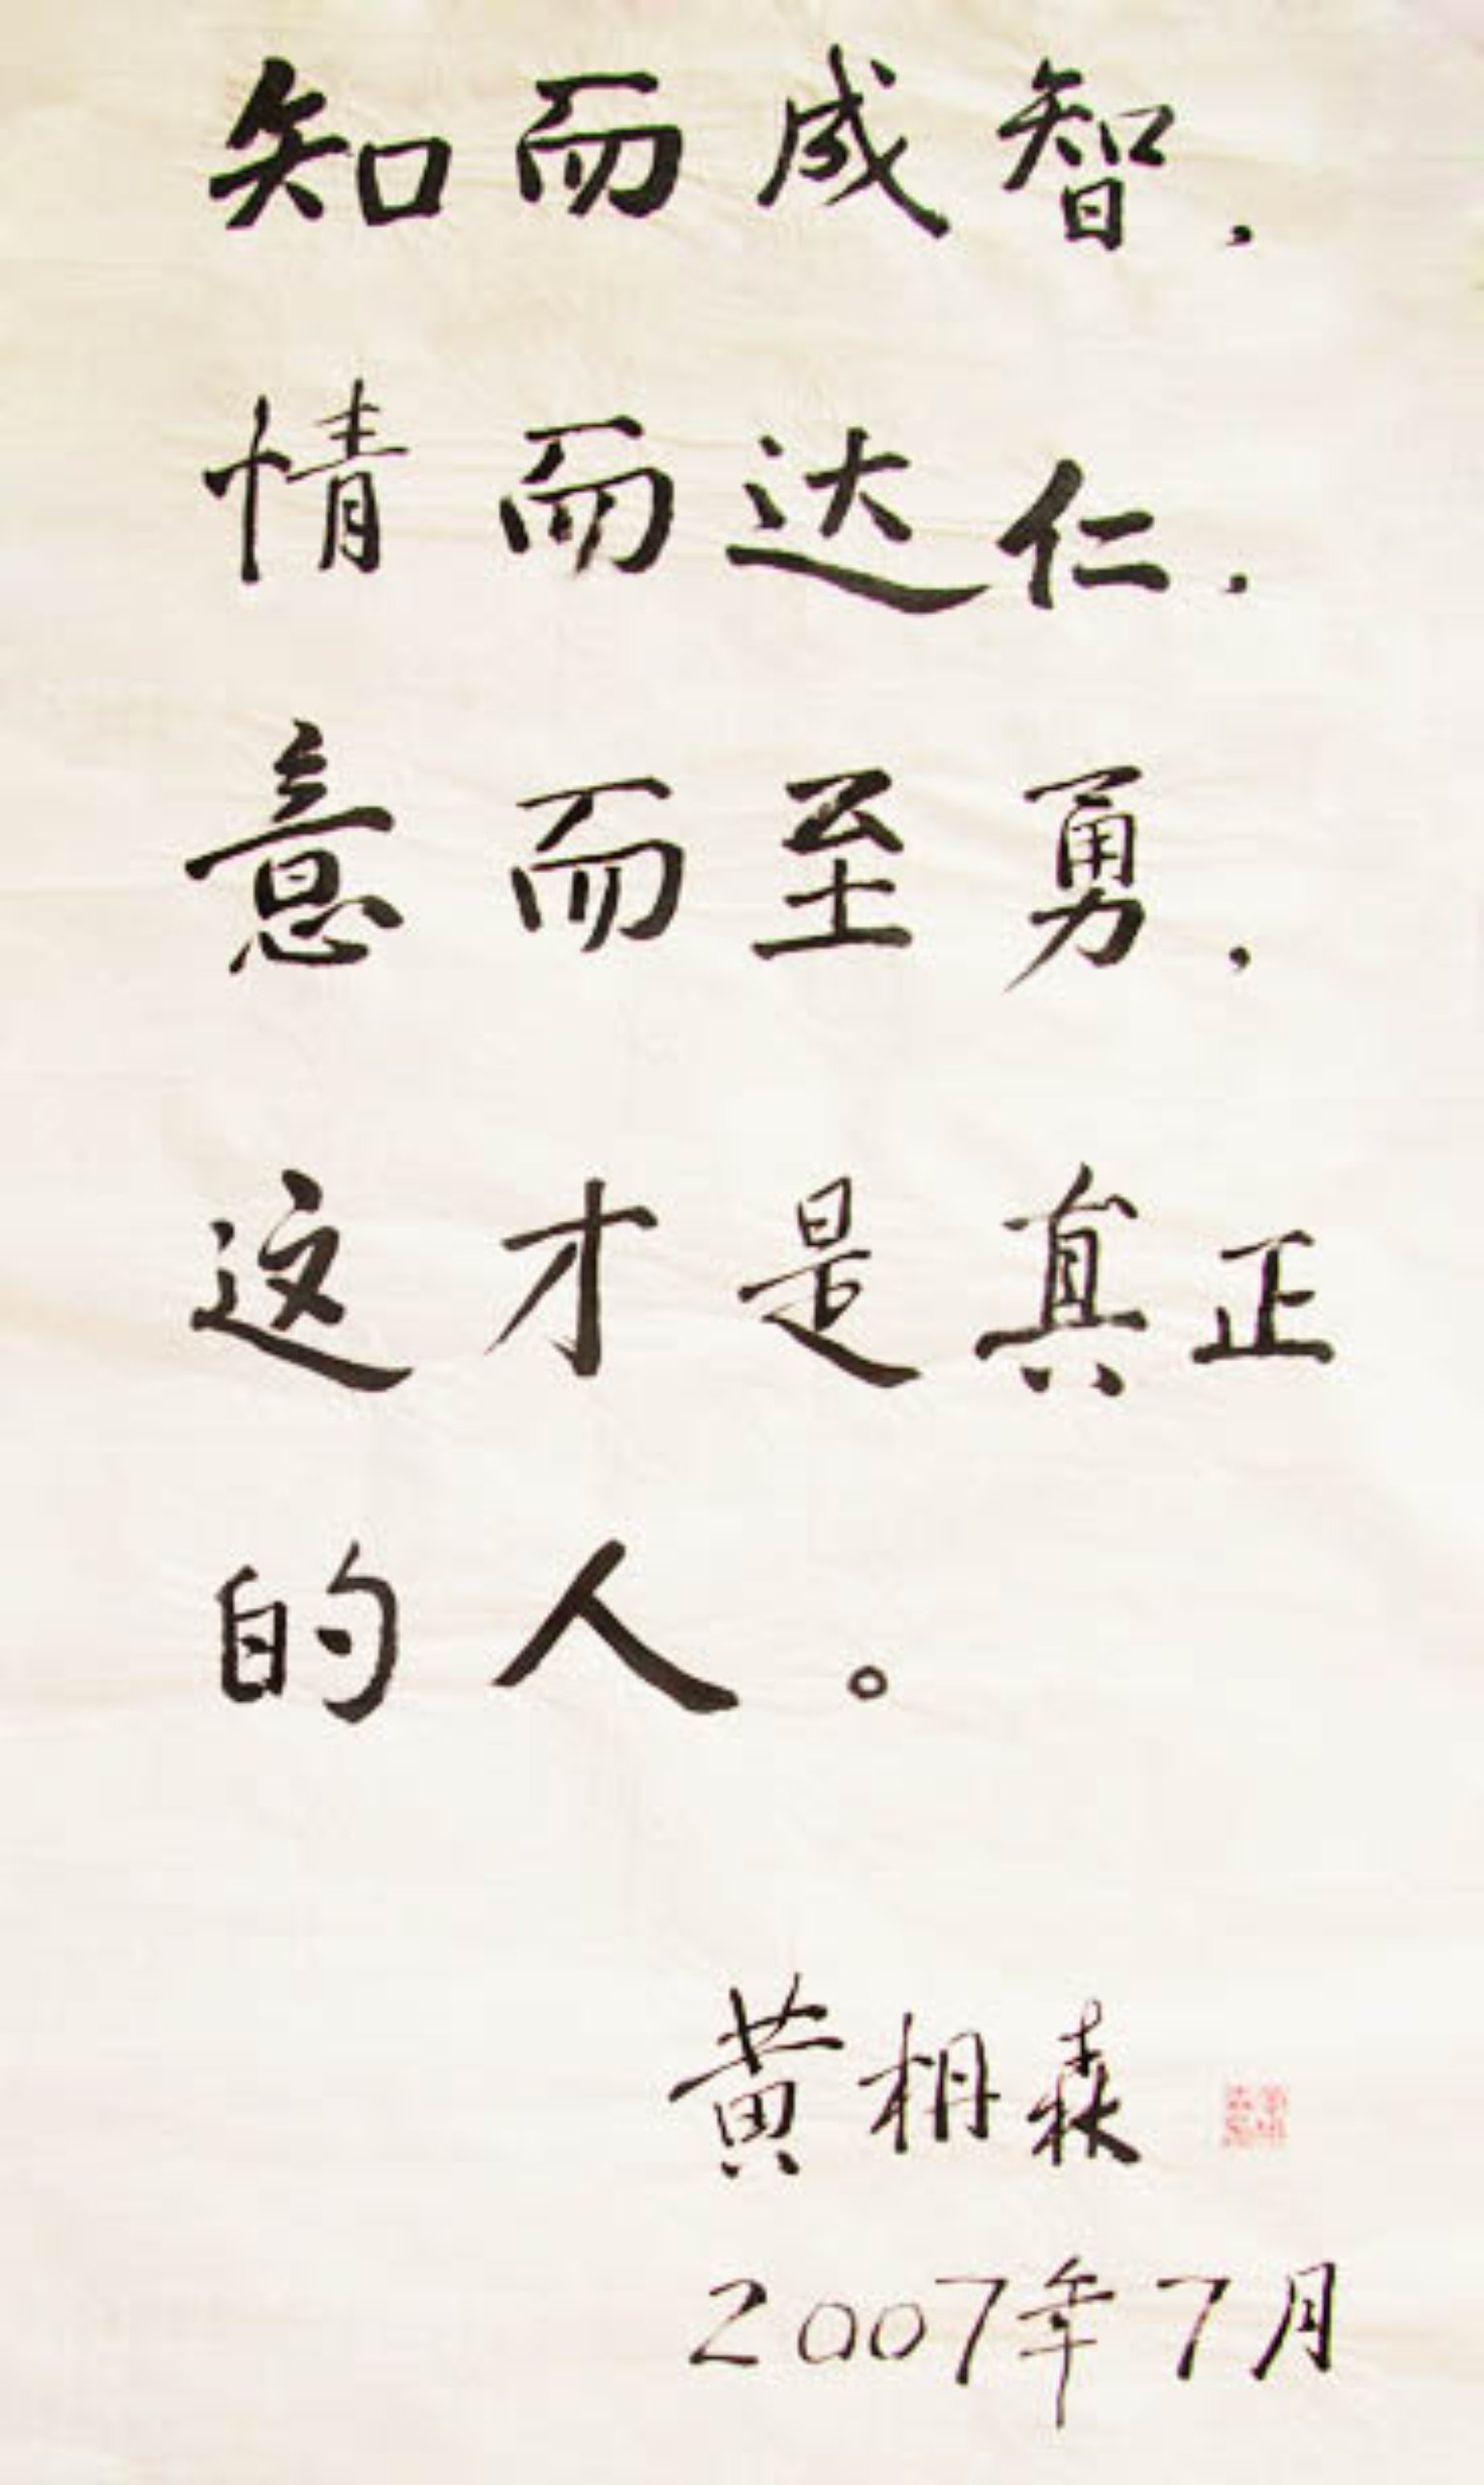 知而成智，
情而达仁，
意而至勇，
这才是真正
的人。
黄枬森
2007年7月